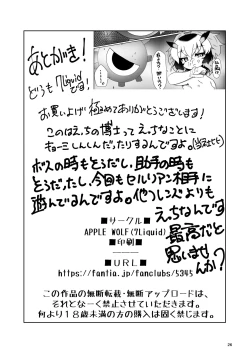 あとがき!
どうも7Liquidです!
お買い上げ極めてありがとうございます!
このはえっちの博士ってえっちなことに
キョーミしんしんだったりするんですよ。
ボスの時もそうだし、助手の時も
そうだたし、今回もセルリアン相手に
進んでるんですよ。他フレンズよりも
えっちなんです
最高だと
思いません
か?
■サークル■
APPLE WOLF(7Liquid)
■印刷■
■URL■
https://fantia.jp/fanclubs/5345
この作品の無断転載・無断アップロードは、
それとなーく禁止させていただきます。
何より18歳未満の方の購入は固く禁じます。
26